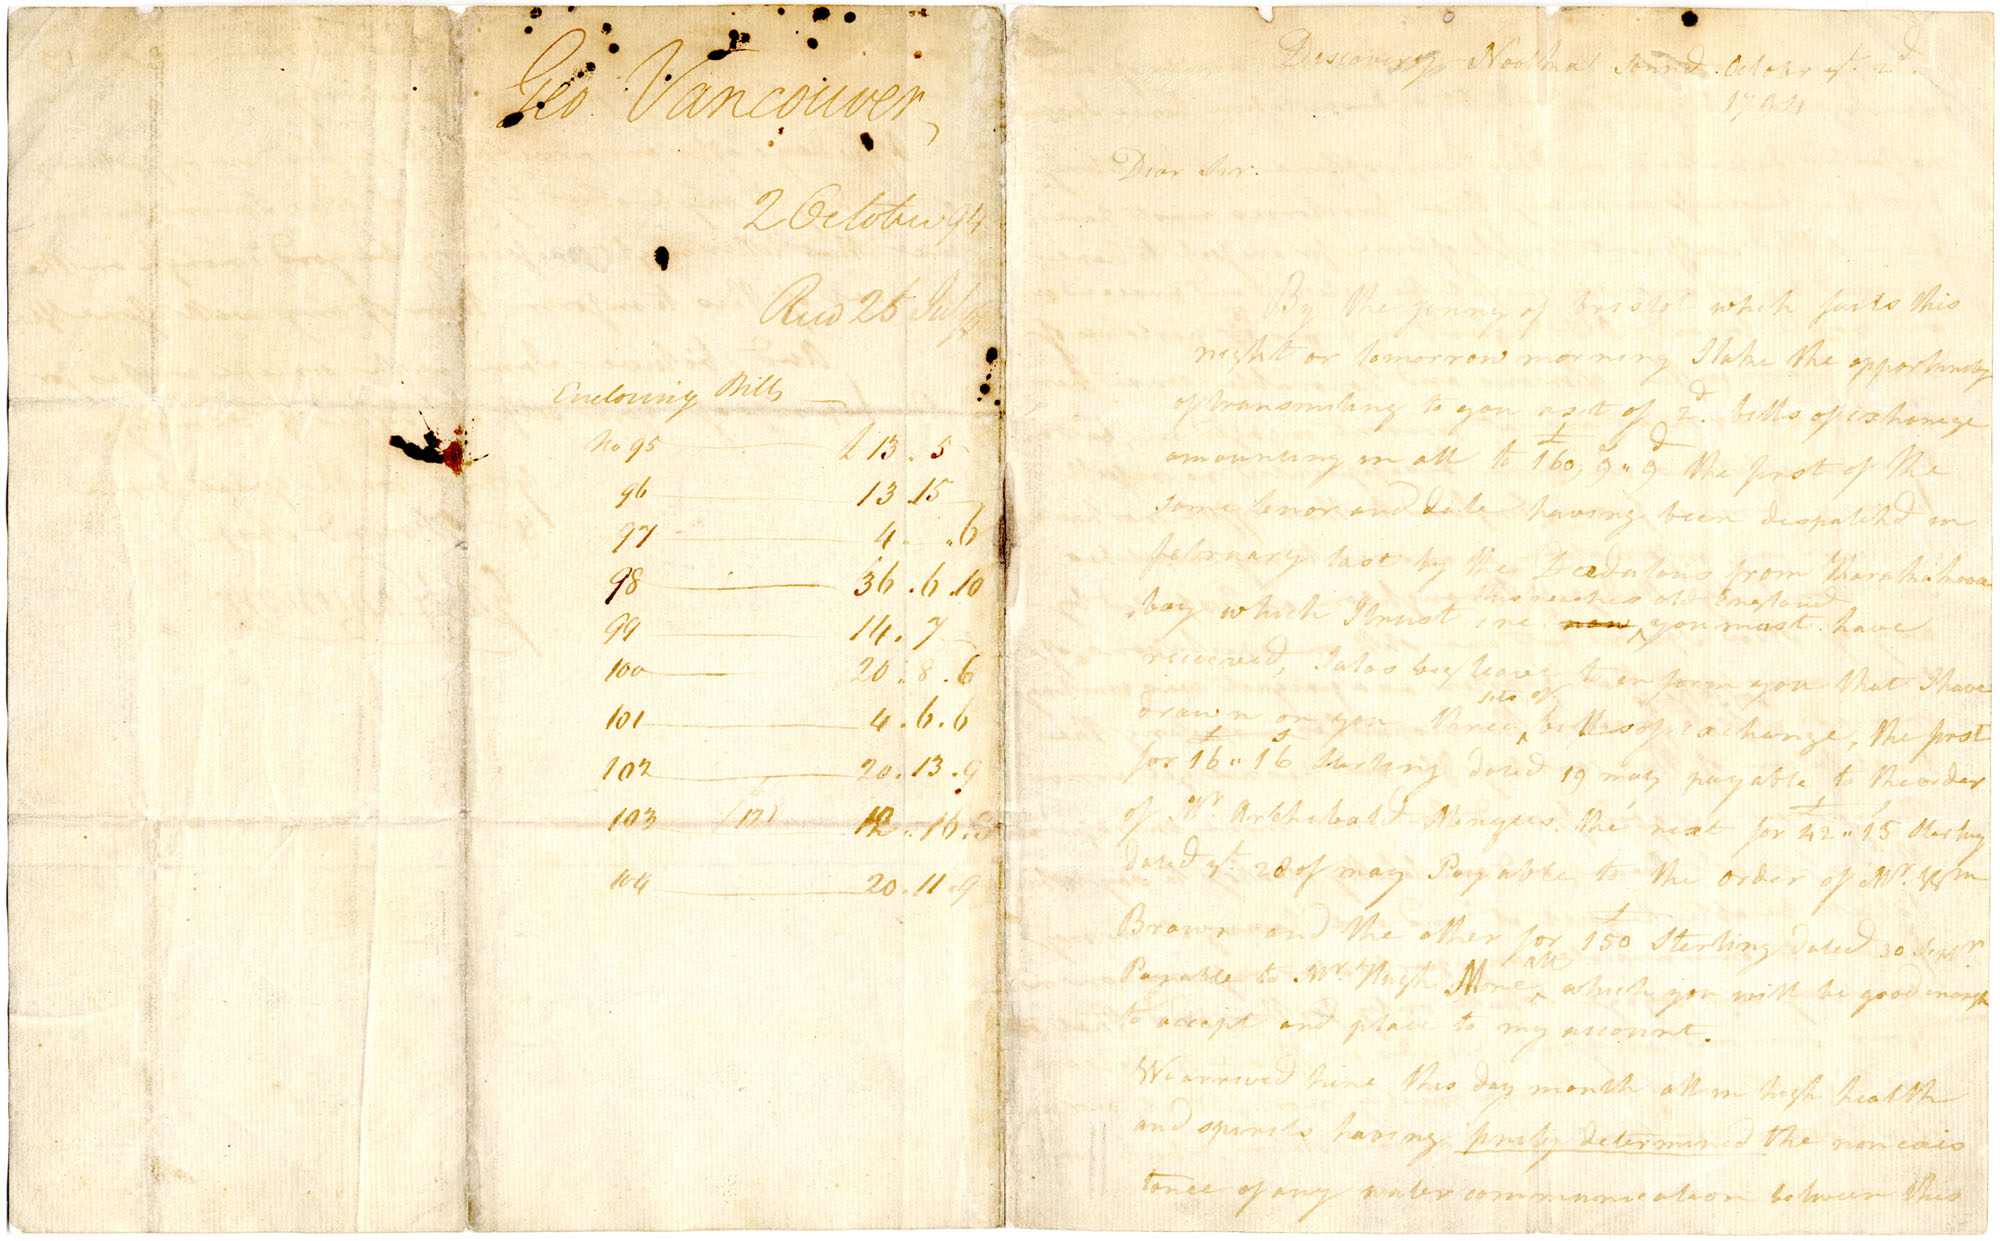 Geo. Vancouver
2 October 94
Recd 26 July 95
Enclosing Bills
No 95 £ 13 . 5
96 13 . 15
97 4 . " . 6
98 36 . 6 . 10
99 14 . 7
100 20 . 8 . 6
101 4 . 6 . 6
102 20 . 13 . 9
103 (12) 12 . 16 . 3
104 20 . 11 . 9
Discovery Nootka Sound October yt. 2d.
1794
Dear Sir.
By the Jenny of bristol which sails this
night or tomorrow morning I take the opportunity
of transmiting to you a set of 2d. bills of exchange
amounting in all to £160 " 9s " 9d the first of the
same tenor and date having been dispatchd in
february last by the Daedalous from Karakakooa
bay which I trust ere now this reaches old England you must have
received, I also beg leave to enform you that I have
drawn on you three sets of bills of exchange, the first
for £16 " 16s Sterling dated 19 may payable to the order
of Mr Archibald Menzies. the next for £42 " 15s Sterling
dated yt. 28 of may Payable to the order of Mr. Wm
Brown and the other for £150 Sterling dated 30 Septr.
Payable to Mr. Hugh Moore all which you will be good enough
to accept and place to my account.
We arrived here this day month all in high health
and spirits having firmly determined the nonexis
tence of any water communication between this